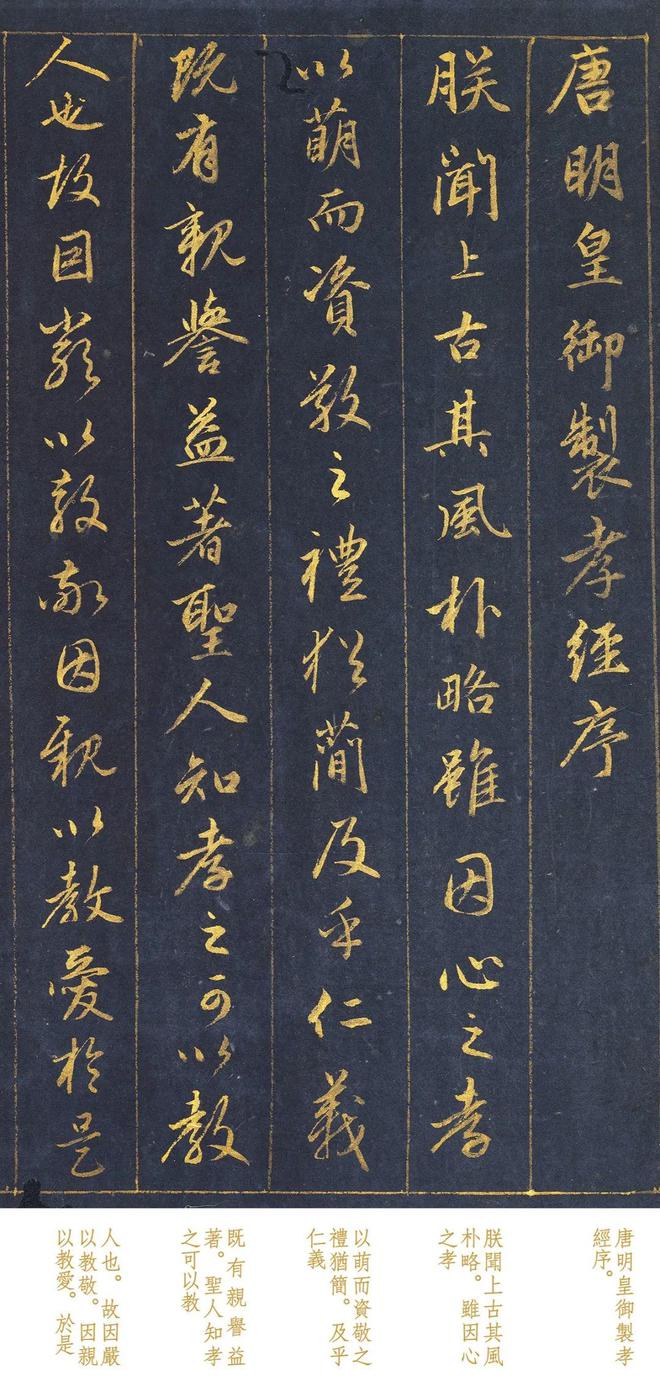 唐明皇御製孝經序
朕聞上古其風朴略雖因心之孝
以萌而資敬之禮猶簡及乎仁義
既有親譽益著聖人知孝之可以教
人也故因嚴以教敬因親以教愛於是
唐明皇御製孝
經序。
朕聞上古其風
朴略。雖因心
之孝
以萌而資敬之
禮猶簡。及乎
仁義
既有親譽益
著。聖人知孝
之可以教
人也。故因嚴
以教敬。因親
以教愛。於是